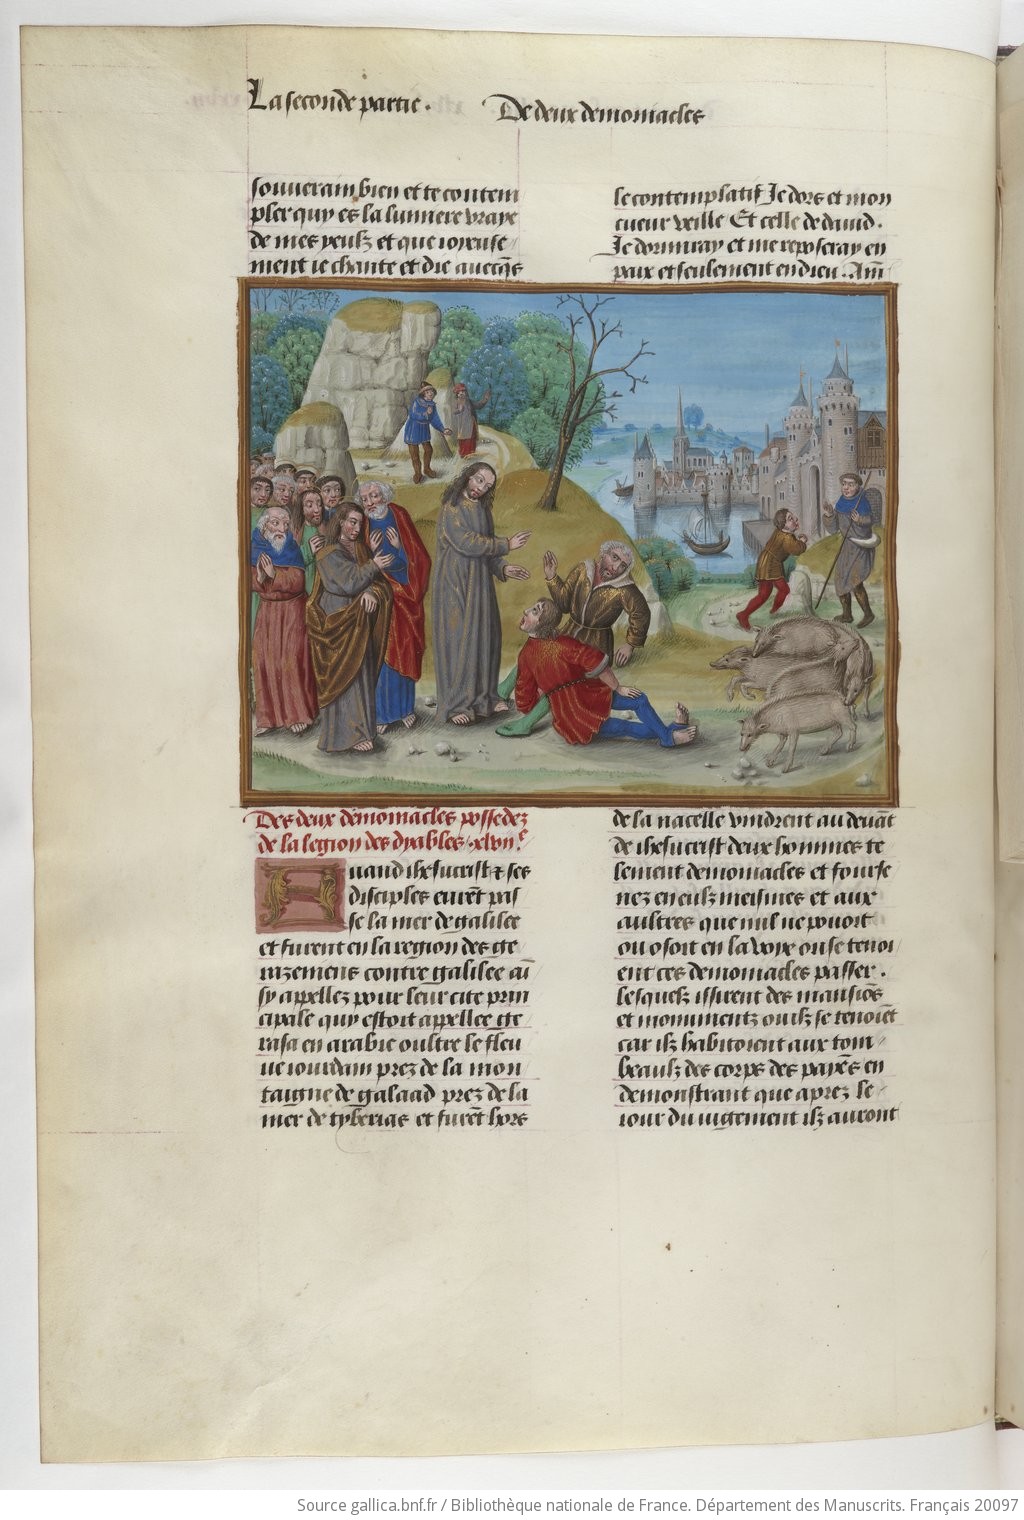 La seconde partie .
De deux demoniacles
souuerain bien et te contem
pler quy es la lumiere vraye
de mes yeulz et que ioyeuse
ment ie chante et die auecq̄s
le contemplatif Je dors et mon
cueur veille Et celle de dauid .
Je dormiray et me reposeray en
paix et seulement en dieu . Am̄
Des deux demoniacles possedez
de la legion des dyables . xlvii.e
Quand ihesucrist & ses
disciples eurēt pas
se la mer de galilee
et furent en la region des ge
razemens contre galilee aī
sy appellez pour leur cite prin
cipale quy estoit appellee ge
rasa en arabie oultre le fleu
ue iourdain prez de la mon
taigne de galaad prez de la
mer de tyberias et furēt hors
de la nacelle vindrent au deuāt
de ihesucrist deux hommes te
lement demoniacles et fourse
nez en eulz meismes et aux
aultres que nul ne pouoit
ou osoit en la voye ou se tenoi
ent ces demoniacles passer .
lesquelz issirent des mansiōs
et monumentz ou ilz se tenoiēt
car ilz habitoient aux tom
beaulz des corps des payēs en
demonstrant que aprez le
iour du iugement ilz auront
Source gallica.bnf.fr / Bibliothèque nationale de France. Département des Manuscrits. Français 20097